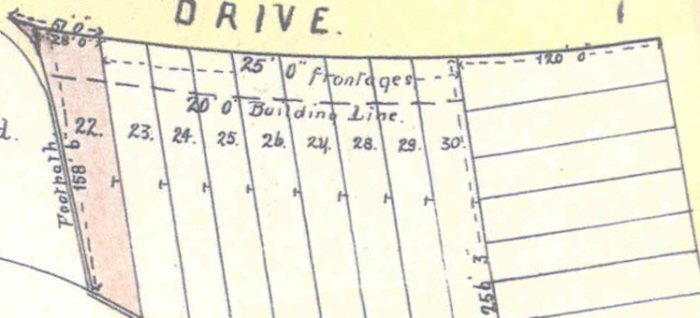 DRIVE.
61' 0"
28' 0"
25' 0" frontages
120' 0"
20' 0" Building Line.
22. 23. 24. 25. 26. 24. 28. 29. 30.
d.
Footpath
158' 6"
T T T T T T T T
256' 3"